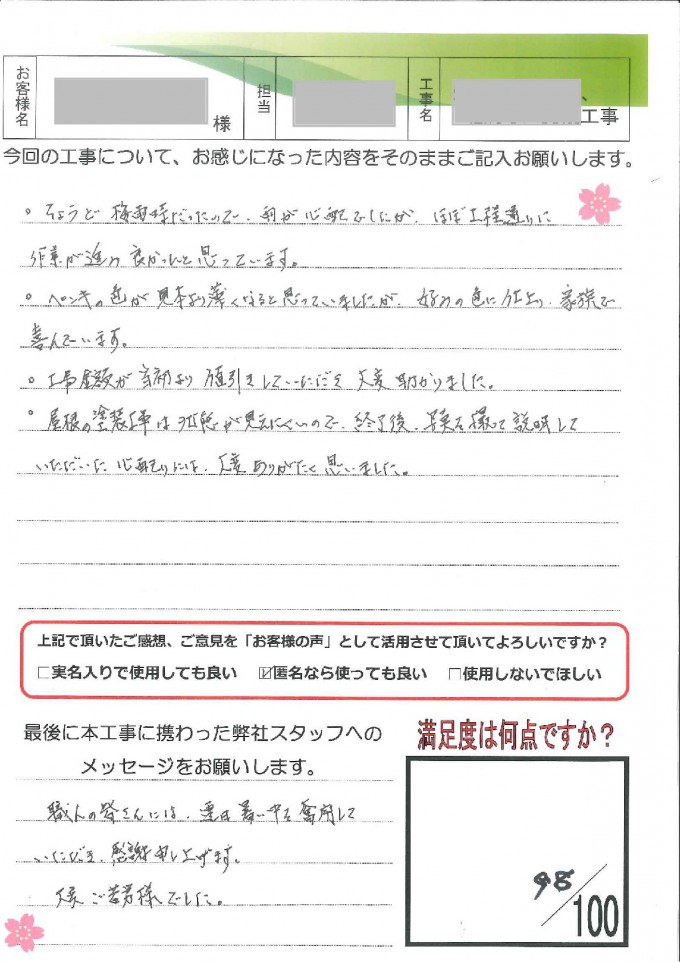 お客様名
様
担当
工事名
工事
今回の工事について、お感じになった内容をそのままご記入お願いします。
。ちょうど 梅雨時だったので、雨が心配でしたが、ほぼ工程通りに
作業が進み 良かったと思っています。
。ペンキの色が見本より薄くなると思っていましたが、好みの色に仕上り、家族で
喜んでいます。
。工事金額が当初より 値引きしていただき 大変 助かりました。
。屋根の塗装工事は 状態が見えにくいので、終了後、写真を撮って説明して
いただいた 心配りには、大変 ありがたく思いました。
上記で頂いたご感想、ご意見を「お客様の声」として活用させて頂いてよろしいですか？
□実名入りで使用しても良い ☑匿名なら使っても良い □使用しないでほしい
最後に本工事に携わった弊社スタッフへの
メッセージをお願いします。
職人の皆さんには、連日 暑い中を 奮闘して
いただき、感謝申し上げます。
大変 ご苦労様でした。
満足度は何点ですか？
98/100